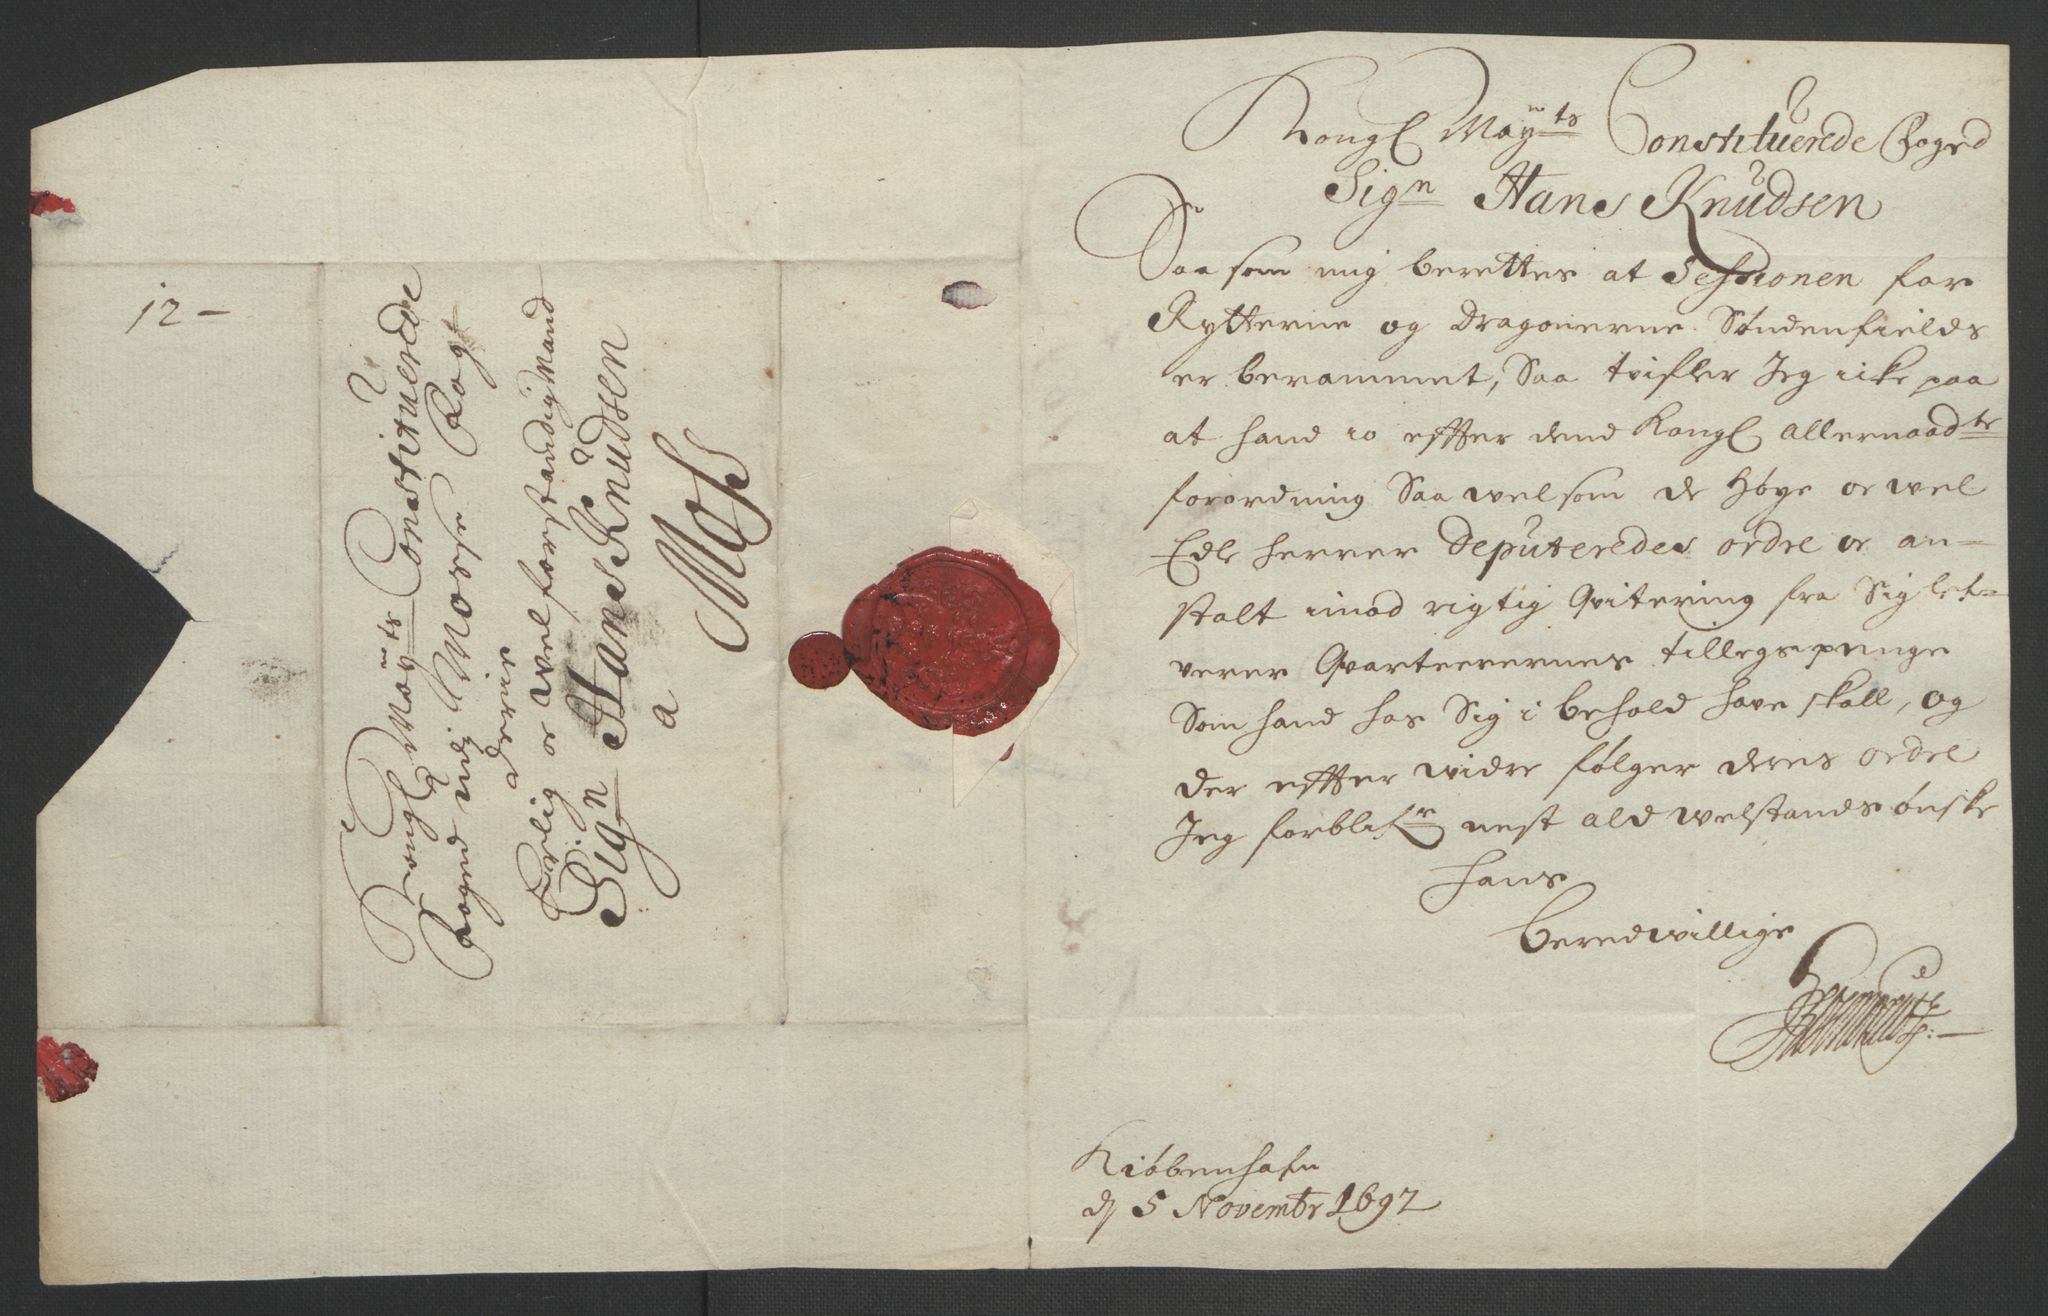 12 -
Kongl Mayts Constituerede
Foged udj Mosse Fogt
derie
Ærlig oc Welforstandig Mand
Sign Hans Knudsen
a
Moss
Kongl Mayts Constituerede Foged
Sign Hans Knudsen
Saa som mig berettes at Sessionen for
Rytterne og Dragonerne Søndenfields
er berammet, Saa tvifler Jeg icke paa
at hand io effter dend Kongl allernaadte
forordning Saa velsom de Høye oc wel
Edle Herrer Deputeredes ordre oc an-
stalt imod rigtig Qvitering fra Sig lef-
verer Qvarteerernes tillegspenge
Som hand hos Sig i behold have skall, og
der effter widre følger deres ordre
Jeg forblifr nest ald welstands ønske
Hans
beredwillige
Kiøbenhafn
dj 5 Novembr 1692